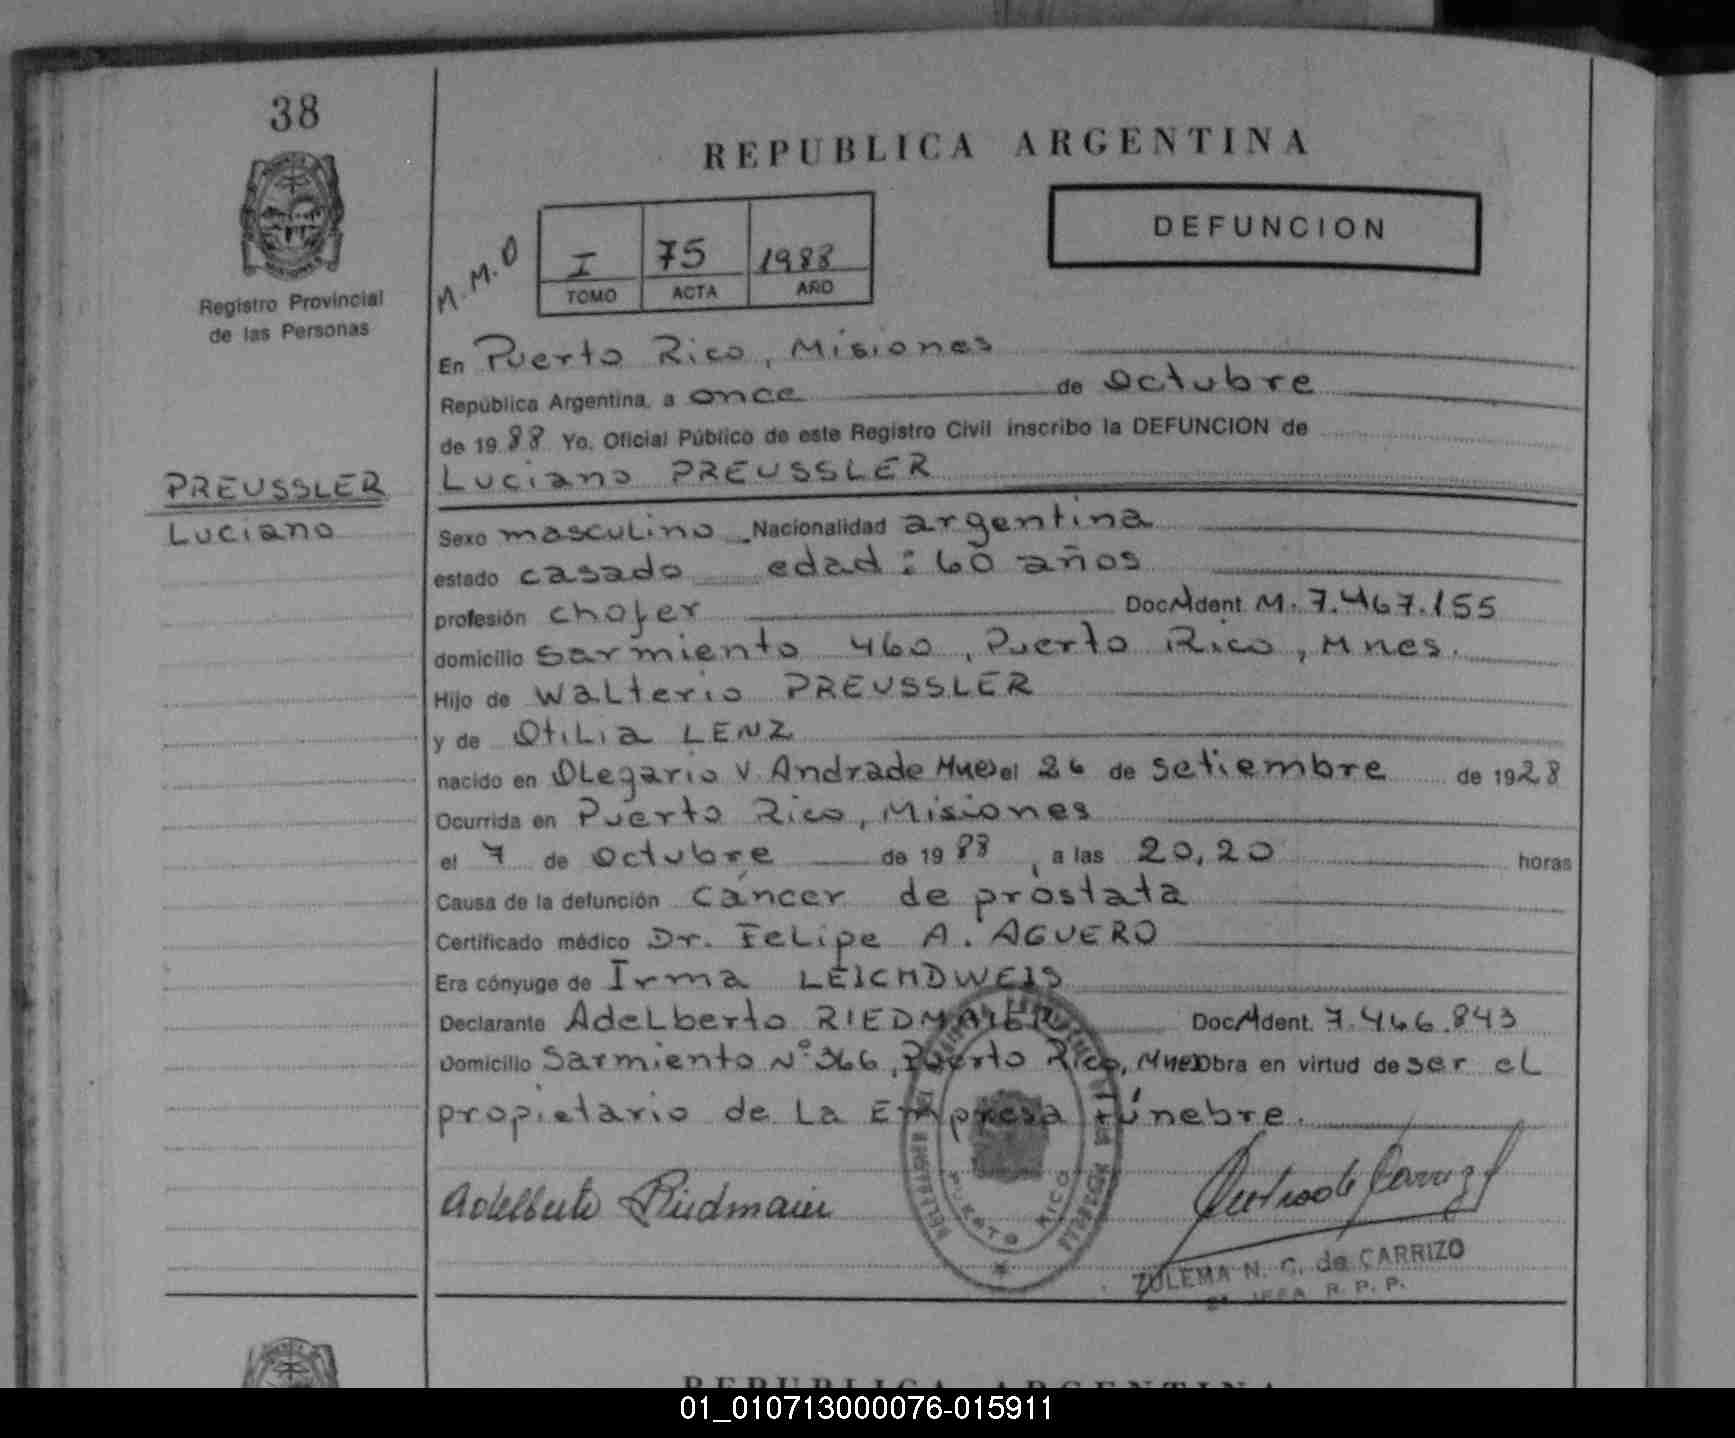 38
Registro Provincial
de las Personas
PREUSSLER
Luciano
REPUBLICA ARGENTINA
DEFUNCION
M.M.O
I 75 1988
TOMO ACTA AÑO
En Puerto Rico, Misiones
República Argentina, a once de Octubre
de 1988 Yo, Oficial Público de este Registro Civil inscribo la DEFUNCION de
Luciano PREUSSLER
Sexo masculino Nacionalidad argentina
estado casado edad: 60 años
profesión chofer Doc. Ident. M. 7.467.155
domicilio Sarmiento 460, Puerto Rico, Mnes.
Hijo de Walterio PREUSSLER
y de Otilia LENZ
nacido en Olegario V. Andrade Mnes el 26 de setiembre de 1928
Ocurrida en Puerto Rico, Misiones
el 7 de Octubre de 1988, a las 20,20 horas
Causa de la defunción cáncer de próstata
Certificado médico Dr. Felipe A. AGUERO
Era cónyuge de Irma LEICHDWEIS
Declarante Adelberto RIEDMAIER Doc. Ident. 7.466.843
Domicilio Sarmiento N° 366, Puerto Rico, Mnes Obra en virtud de ser el
propietario de la Empresa fúnebre.
Adelberto Riedmaier
PUERTO RICO
ZULEMA N. C. de CARRIZO
JEFA R. P. P.
REPUBLICA ARGENTINA
01_010713000076-015911